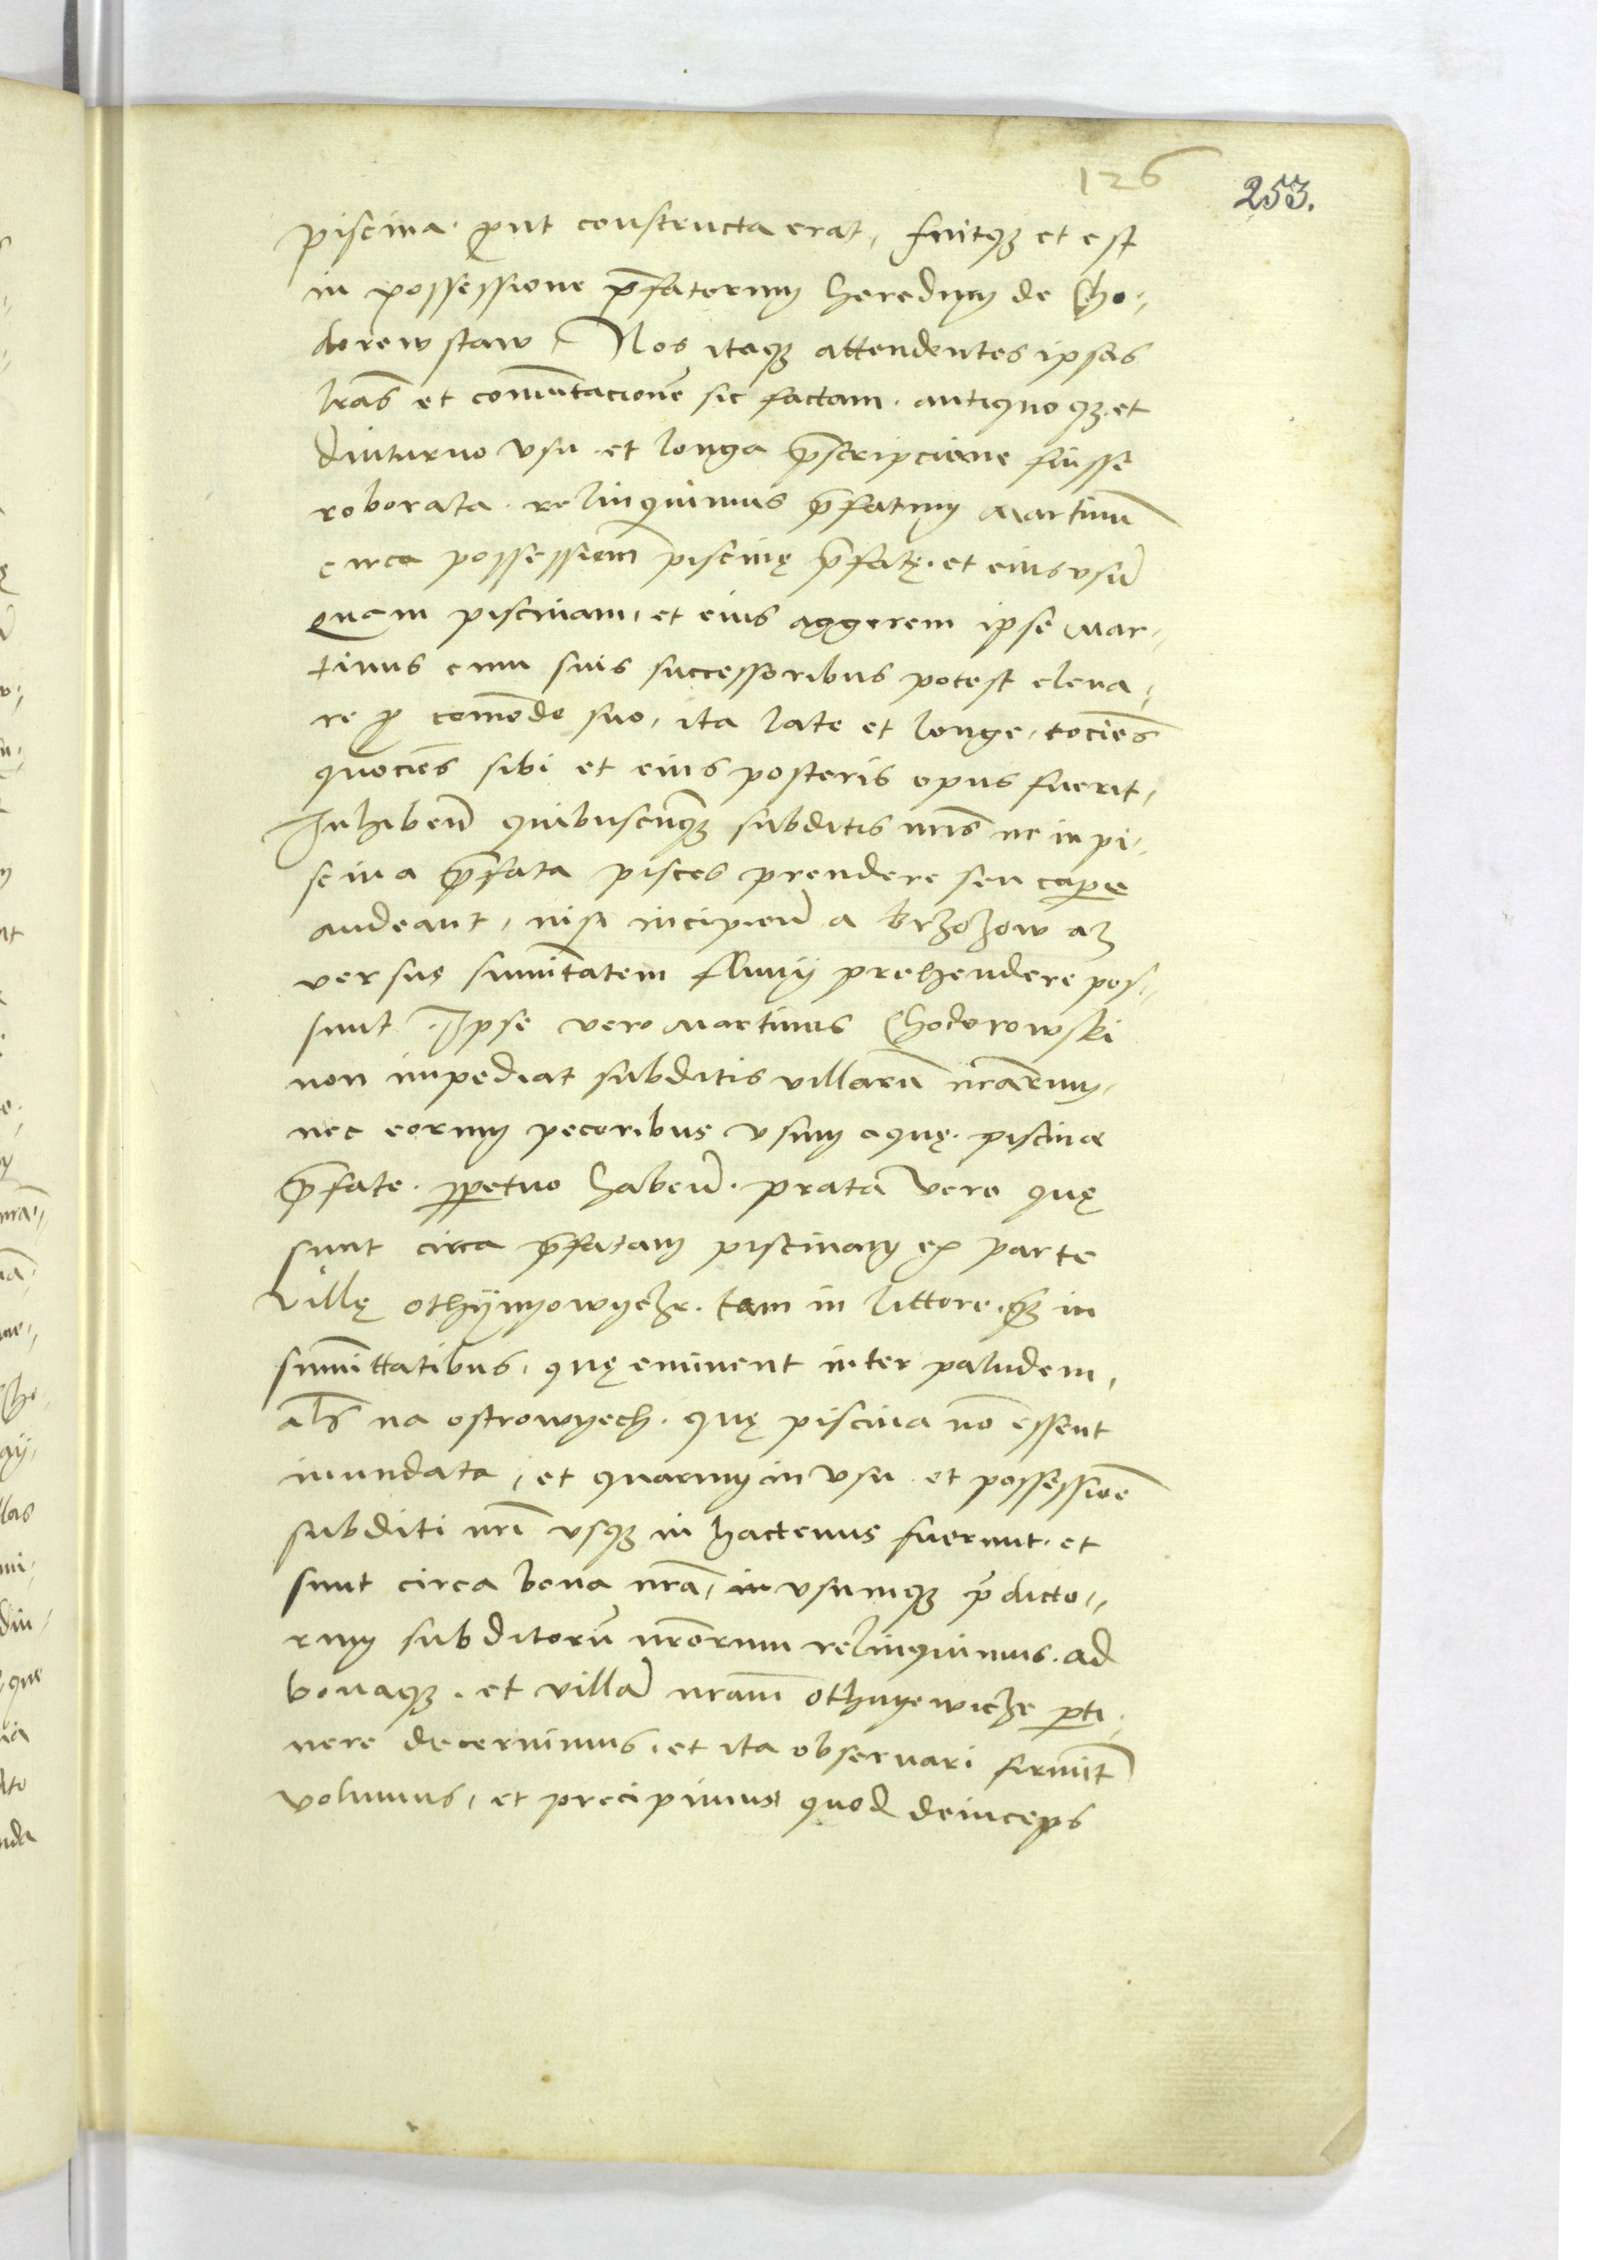 126
253.
piscina. ꝓut constructa erat, fuitqȝ et est
in possessione p̄fatorum heredum de Cho-
dorew staw. Nos itaqȝ attendentes ipsas
lr̄as et com̄utacionē sic factam. antiquoqȝ et
diuturno vsu et longa p̄scripcione fuisse
roborata. relinquimus p̄fatum Martinū
circa possessiom̄ piscinę p̄fatę. et eius vsū
Quam piscinam, et eius aggerem ipse Mar-
tinus cum suis successoribus potest eleua-
re ꝓ com̄odo suo, ita late et longe, tociēs
quociēs sibi et eius posteris opus fuerit,
Inhibeñ quibuscūqȝ subditis nr̄is ne in pi-
scina p̄fata pisces prendere seu capꝑe
audeant, nisi incipieñ a brzozow az
versus sum̄itatem fluuij prehendere pos-
sunt. Ipse vero Martinus Chodorowski
non impediat subditis villarū nr̄arum,
nec eorum pecoribus vsum aquę. piscinæ
p̄fate. ꝑpetuo habeñ. prata vero quę
sunt circa p̄fatam piscinam ex parte
Villę othÿnyowycze. tam in littore. q̄ȝ in
sum̄ittatibus, quę eminent inter paludem,
al̄s na ostrowyech. quę piscina nō essent
inundata, et quarum in vsu et possessiōe
subditi nr̄i vsqȝ in hactenus fuerunt. et
sunt circa bona nr̄a, in vsumqȝ p̄dicto-
rum subditorū nr̄orum relinquimus. ad
bonaqȝ. et villā nr̄am othnyewicze ꝑti-
nere decernimus. et ita obseruari firmit̄
volumus, et precipimus quod deinceps